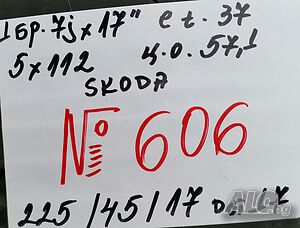 1бр. 7j x 17" et. 37
5 x 112 ц.о. 57,1
SKODA
№ 606
225 / 45 / 17
ALO.bg